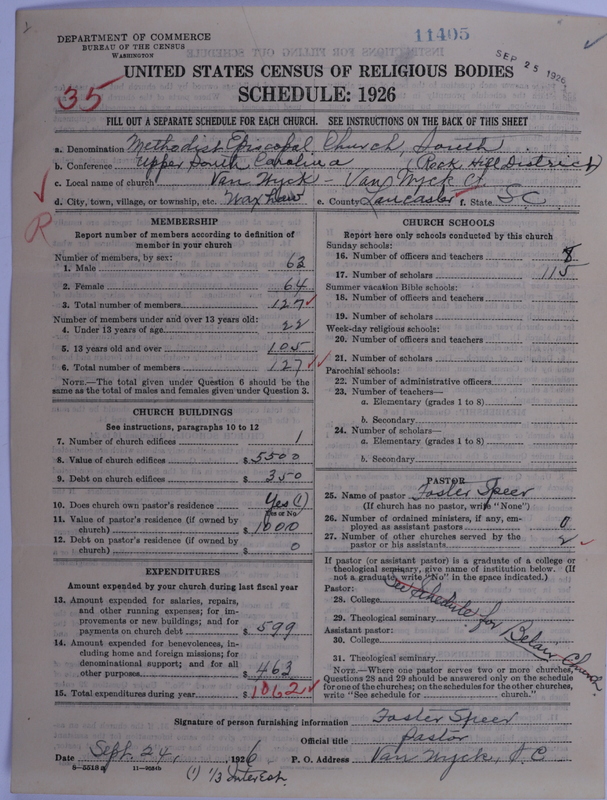 DEPARTMENT OF COMMERCE
BUREAU OF THE CENSUS
WASHINGTON
11405
SEP 25 1926
UNITED STATES CENSUS OF RELIGIOUS BODIES
35
SCHEDULE: 1926
FILL OUT A SEPARATE SCHEDULE FOR EACH CHURCH. SEE INSTRUCTIONS ON THE BACK OF THIS SHEET
a. Denomination Methodist Episcopal Church, South
b. Conference Upper South Carolina (Rock Hill District)
c. Local name of church Van Wyck - Van Wyck C
d. City, town, village, or township, etc. Waxhaw e. County Lancaster f. State SC
R
MEMBERSHIP
Report number of members according to definition of
member in your church
Number of members, by sex:
1. Male 63
2. Female 64
3. Total number of members 127
Number of members under and over 13 years old:
4. Under 13 years of age 22
5. 13 years old and over 105
6. Total number of members 127
NOTE.—The total given under Question 6 should be
same as the total of males and females given under Question 3.
CHURCH BUILDINGS
See instructions, paragraphs 10 to 12
7. Number of church edifices 1
8. Value of church edifices $ 5500
9. Debt on church edifices $ 350
10. Does church own pastor's residence Yes (1)
Yes or No
11. Value of pastor's residence (if owned by
church) $ 1000
12. Debt on pastor's residence (if owned by
church) $ 0
EXPENDITURES
Amount expended by your church during last fiscal year
13. Amount expended for salaries, repairs,
and other running expenses; for im-
provements or new buildings; and for
payments on church debt $ 599
14. Amount expended for benevolences, in-
cluding home and foreign missions; for
denominational support; and for all
other purposes $ 463
15. Total expenditures during year $ 1062
CHURCH SCHOOLS
Report here only schools conducted by this church
Sunday schools:
16. Number of officers and teachers 8
17. Number of scholars 115
Summer vacation Bible schools:
18. Number of officers and teachers
19. Number of scholars
Week-day religious schools:
20. Number of officers and teachers
21. Number of scholars
Parochial schools:
22. Number of administrative officers
23. Number of teachers—
a. Elementary (grades 1 to 8)
b. Secondary
24. Number of scholars—
a. Elementary (grades 1 to 8)
b. Secondary
PASTOR
25. Name of pastor Foster Speer
(If church has no pastor, write "None")
26. Number of ordained ministers, if any, em-
ployed as assistant pastors 0
27. Number of other churches served by the
pastor or his assistants 2
If pastor (or assistant pastor) is a graduate of a college or
theological seminary, give name of institution below. (If
not a graduate, write "No" in the space indicated.)
Pastor:
28. College
See Schedule for Belair Church.
29. Theological seminary
Assistant pastor:
30. College
31. Theological seminary
NOTE.—Where one pastor serves two or more churches,
Questions 28 and 29 should be answered only on the schedule
for one of the churches; on the schedules for the other churches,
write "See schedule for church."
Signature of person furnishing information Foster Speer
Official title Pastor
Date Sept. 24, 1926 P. O. Address Van Wyck, S.C
8—5518 a 11—9051b
(1) 1/3 Interest.